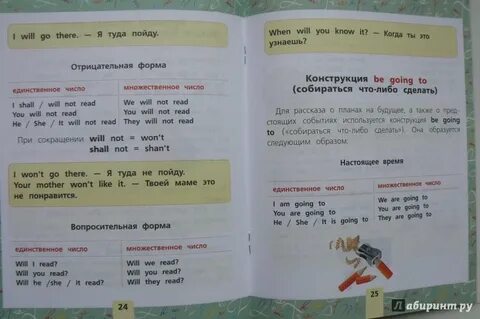 I will go there. — Я туда пойду.
Отрицательная форма
единственное число множественное число
I shall / will not read We will not read
You will not read You will not read
He / She / It will not read They will not read
При сокращении will not = won't
shall not = shan't
I won't go there. — Я туда не пойду.
Your mother won't like it. — Твоей маме это
не понравится.
Вопросительная форма
единственное число множественное число
Will I read? Will we read?
Will you read? Will you read?
Will he /she / it read? Will they read?
24
When will you know it? — Когда ты это
узнаешь?
Конструкция be going to
(собираться что-либо сделать)
Для рассказа о планах на будущее, а также о пред-
стоящих событиях используется конструкция be going
to («собираться что-либо сделать»). Она образуется
следующим образом:
Настоящее время
единственное число множественное число
I am going to We are going to
You are going to You are going to
He / She / It is going to They are going to
25
Лабиринт.ру